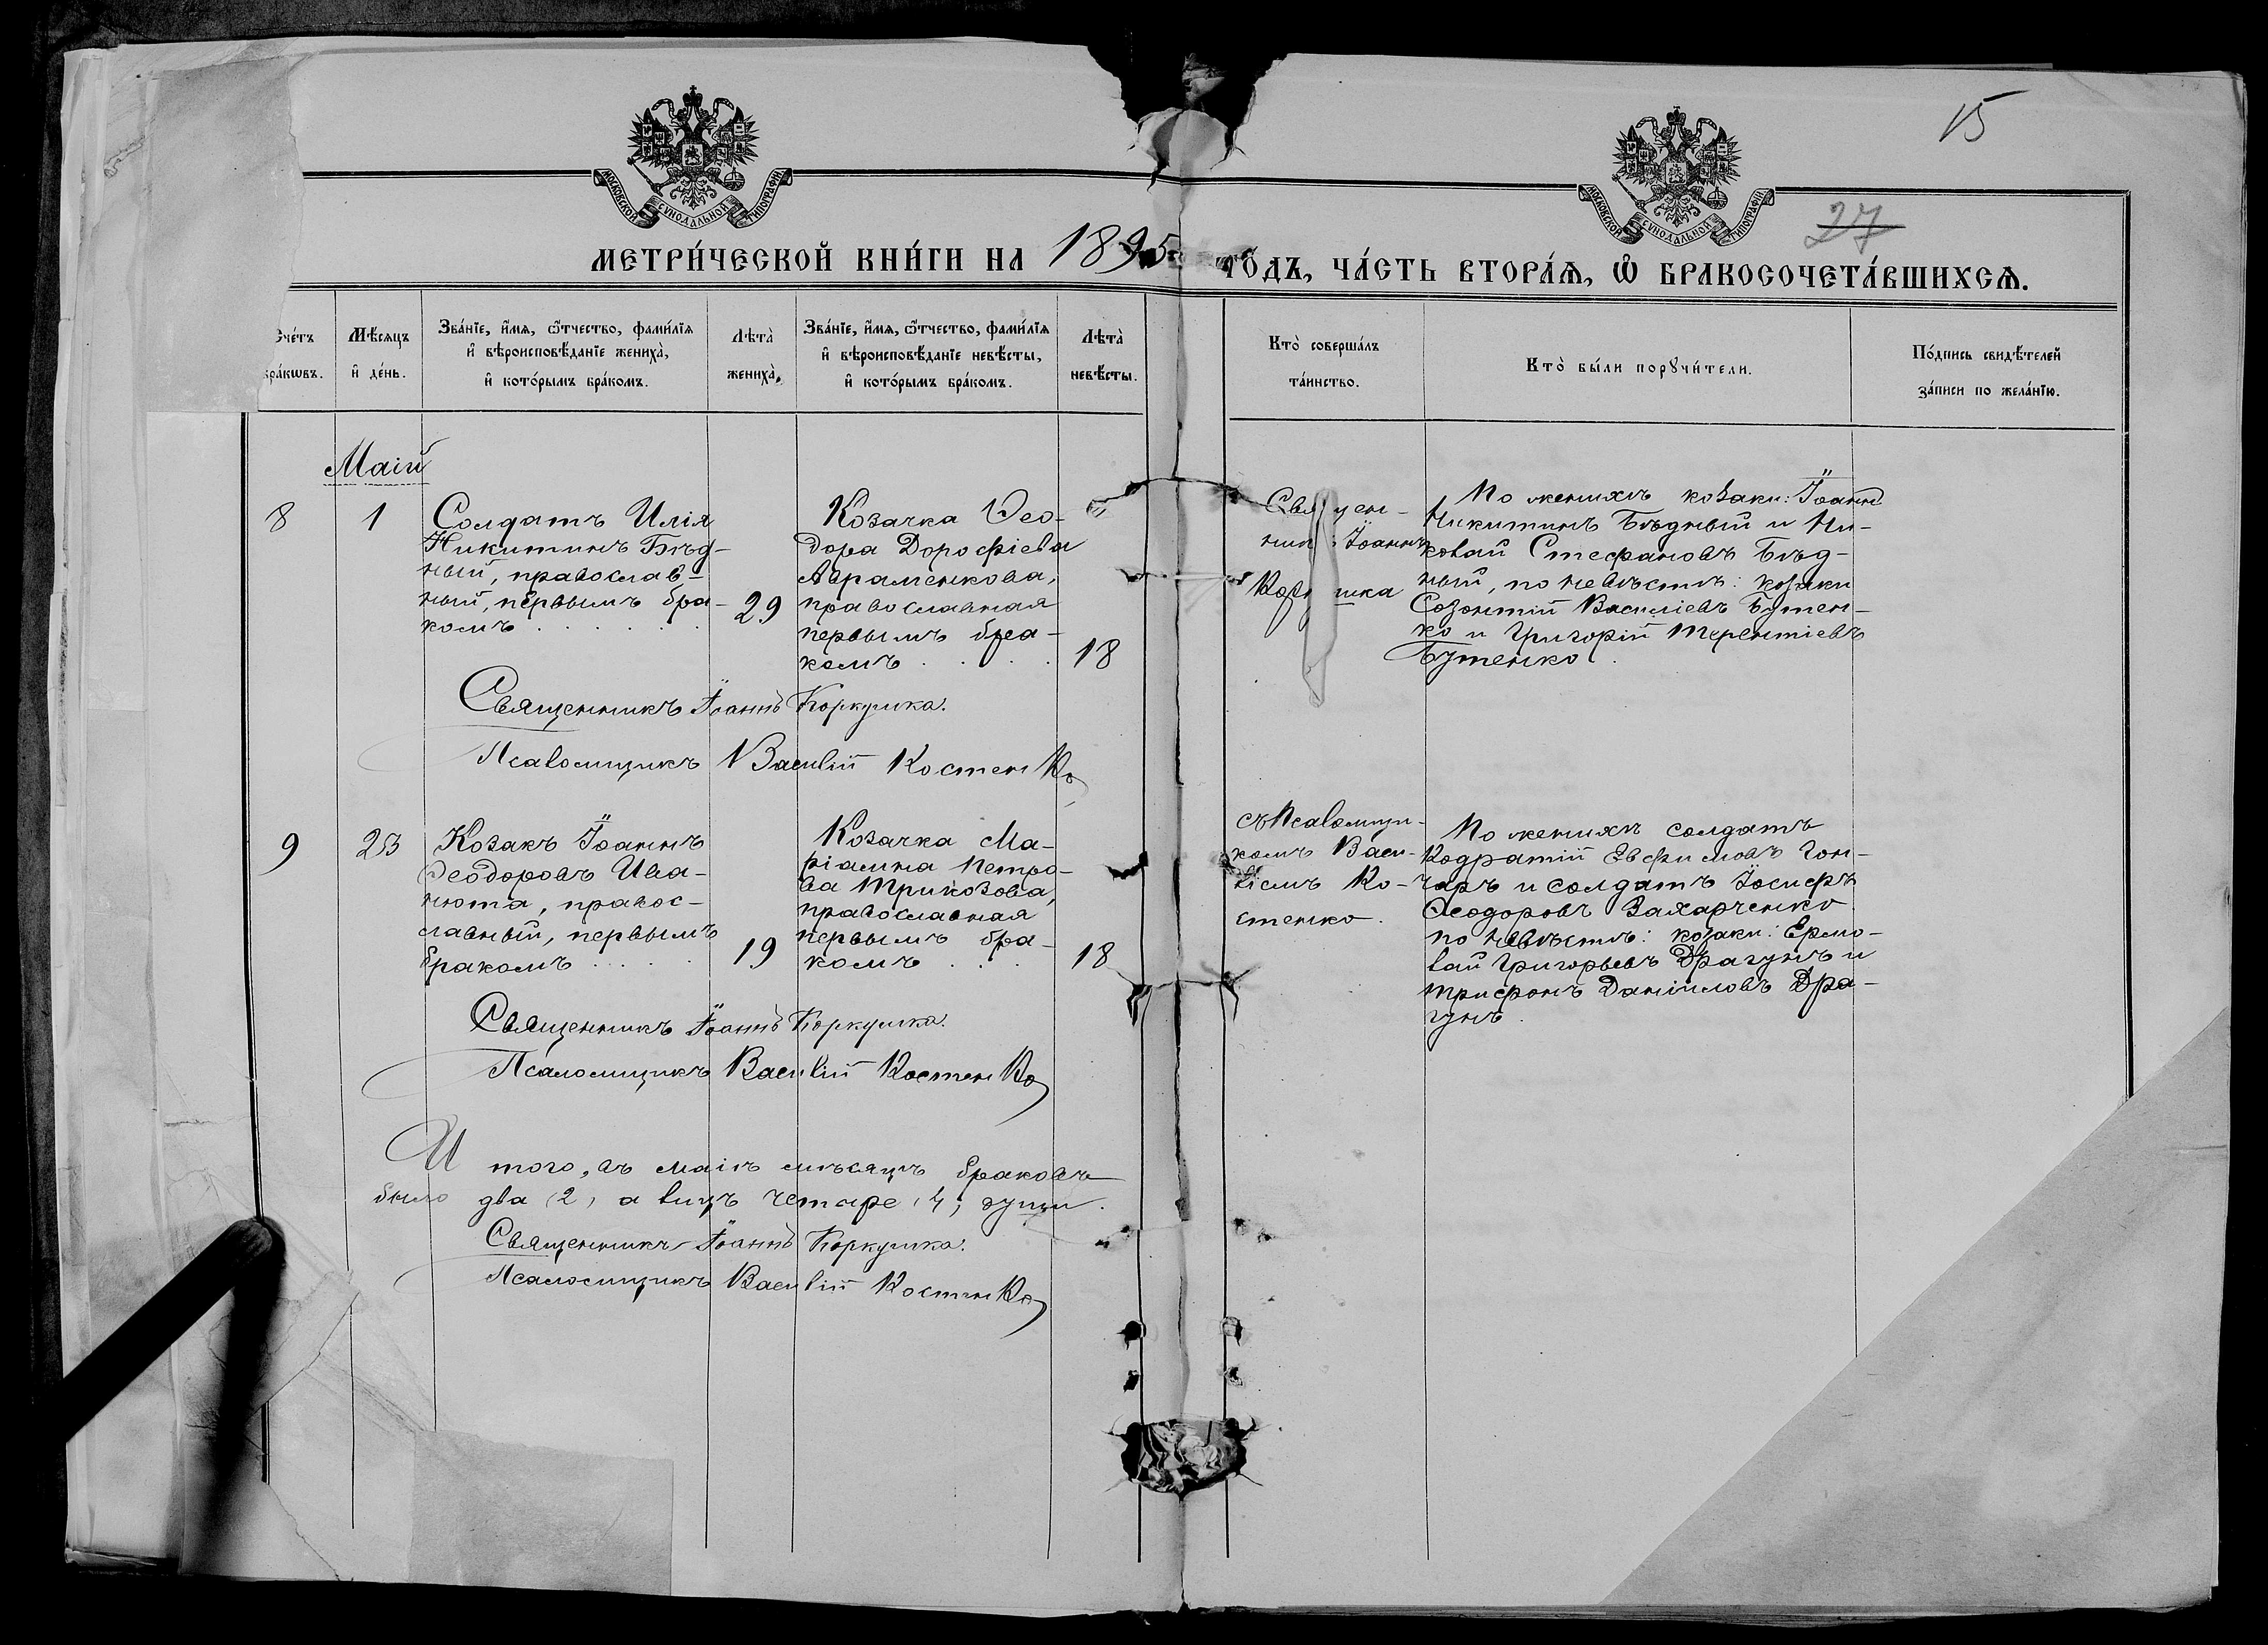 15
МОСКОВСКОЙ СѴНОДАЛЬНОЙ ТИПОГРАФІИ
МОСКОВСКОЙ СѴНОДАЛЬНОЙ ТИПОГРАФІИ
27
МЕТРИ́ЧЕСКОЙ КНИ́ГИ НА 1895 ГО́ДЪ, ЧА́СТЬ ВТОРА́Ѧ, Ѡ҆ БРАКОСОЧЕТА́ВШИХСѦ.
Сче́тъ
бра́кѡвъ.
Мѣ́сѧцъ
и҆ де́нь.
Зва́нїе, и҆́мѧ, ѻ҆́тчество, фами́лїѧ
и҆ вѣроисповѣ́данїе жениха̀,
и҆ кото́рымъ бра́комъ.
Лѣта̀
жениха̀.
Зва́нїе, и҆́мѧ, ѻ҆́тчество, фами́лїѧ
и҆ вѣроисповѣ́данїе невѣ́сты,
и҆ кото́рымъ бра́комъ.
Лѣта̀
невѣ́сты.
Кто̀ соверша́лъ
та́инство.
Кто̀ бы́ли порꙋчи́тели.
По́дпись свидѣ́телей
за́писи по жела́нїю.
Маій
8
1
Солдатъ Илія
Никитинъ Бѣд-
ный, православ-
ный, первымъ бра-
комъ . . . . . .
29
Козачка Ѳео-
дора Дорофіева
Авраменкова,
православная
первымъ бра-
комъ . . . .
18
Священ-
никъ Іоаннъ
Коркушка
По женихѣ козаки: Іоаннъ
Никитинъ Бѣдный и Ни-
колай Стефановъ Бѣд-
ный, по невѣстѣ: козаки
Созонтій Василіевъ Бутен-
ко и Григорій Терентіевъ
Бутенко.
Священникъ Іоаннъ Коркушка.
Псаломщикъ Василій Костенко
9
23
Козакъ Іоаннъ
Ѳеодоровъ Ива-
нюта, правос-
лавный, первымъ
бракомъ . . . .
19
Козачка Ма-
ріамна Петро-
ва Трикозова,
православная
первымъ бра-
комъ . . .
18
съ Псаломщи-
комъ Васи-
ліемъ Ко-
стенко.
По женихѣ солдатъ
Кодратій Евфимовъ Гон-
чаръ и солдатъ Іосифъ
Ѳеодоровъ Захарченко
по невѣстѣ: козаки: Ермо-
лай Григорьевъ Драгунъ и
Трифонъ Даніиловъ Дра-
гунъ.
Священникъ Іоаннъ Коркушка.
Псаломщикъ Василій Костенко
И того, въ маіѣ мѣсяцѣ браковъ
было два (2) а лицъ четыре (4) души.
Священникъ Іоаннъ Коркушка.
Псаломщикъ Василій Костенко